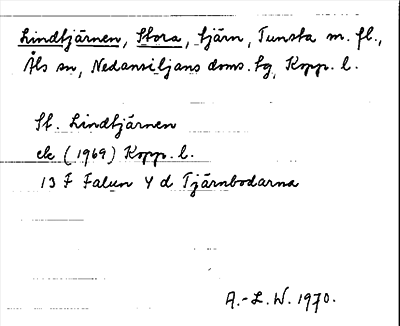 Lindtjärnen, Stora, tjärn, Tunsta m. fl.,
Åls sn, Nedansiljans doms. tg, Kopp. l.
St. Lindtjärnen
ek (1969) Kopp. l.
13 F Falun 4 d Tjärnbodarna
A.-L. W. 1970.